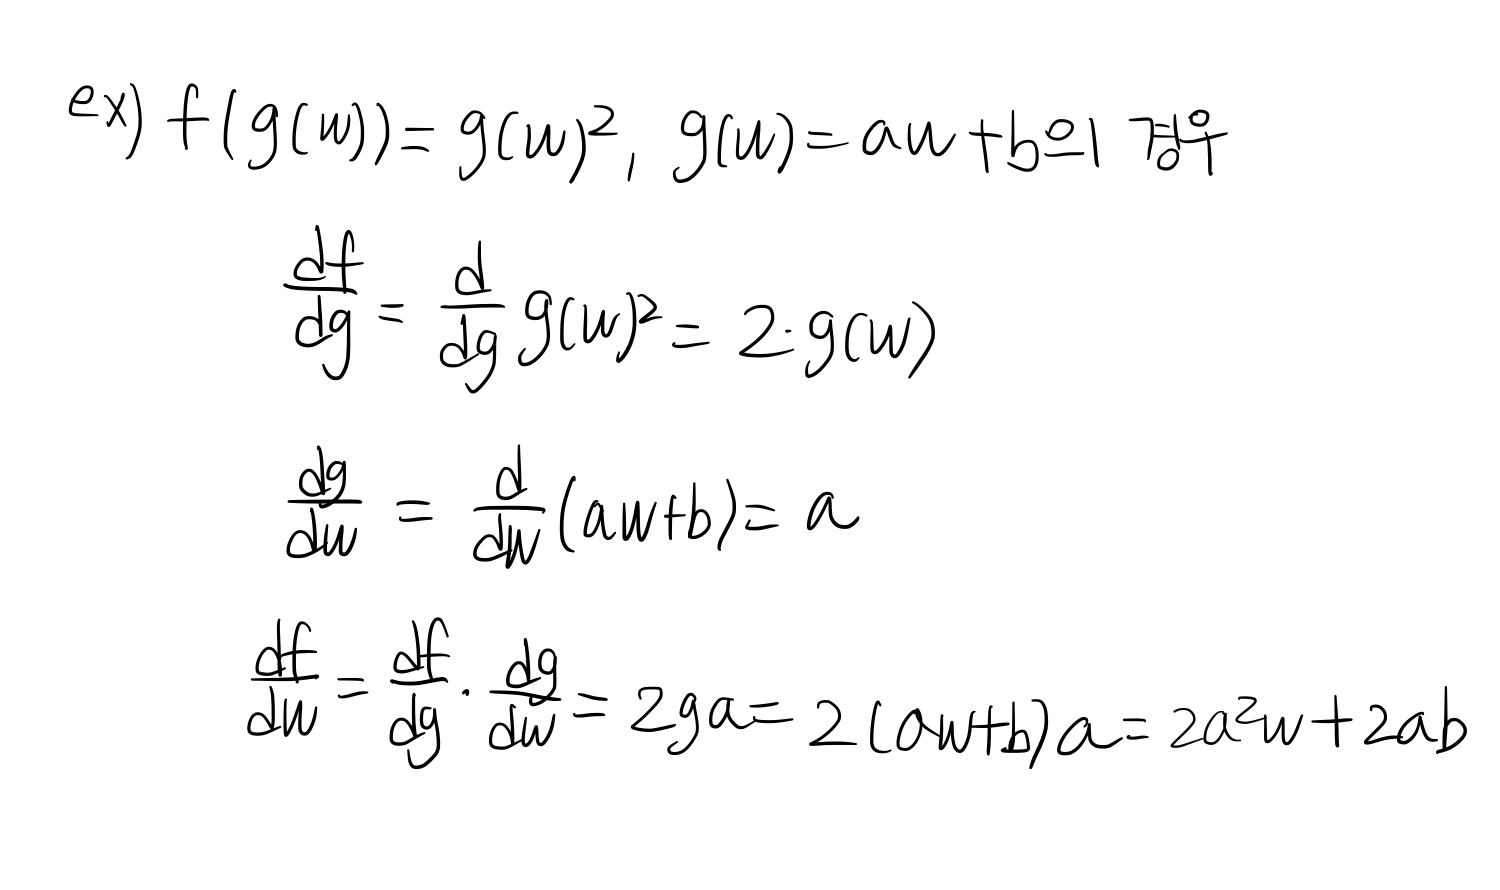 ex) f(g(w)) = g(w)², g(w) = aw+b의 경우
df/dg = d/dg g(w)² = 2·g(w)
dg/dw = d/dw (aw+b) = a
df/dw = df/dg · dg/dw = 2ga = 2(aw+b)a = 2a²w+2ab